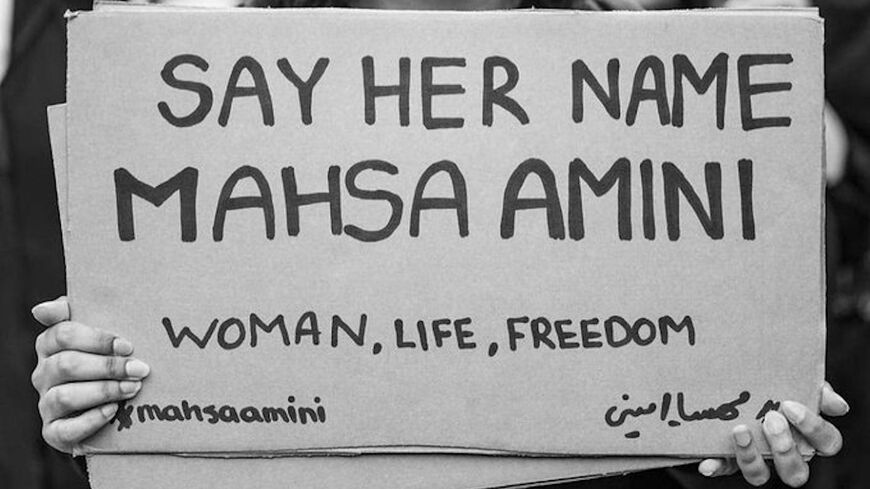 SAY HER NAME
MAHSA AMINI
WOMAN, LIFE, FREEDOM
#mahsaamini
#مهسا_امینی